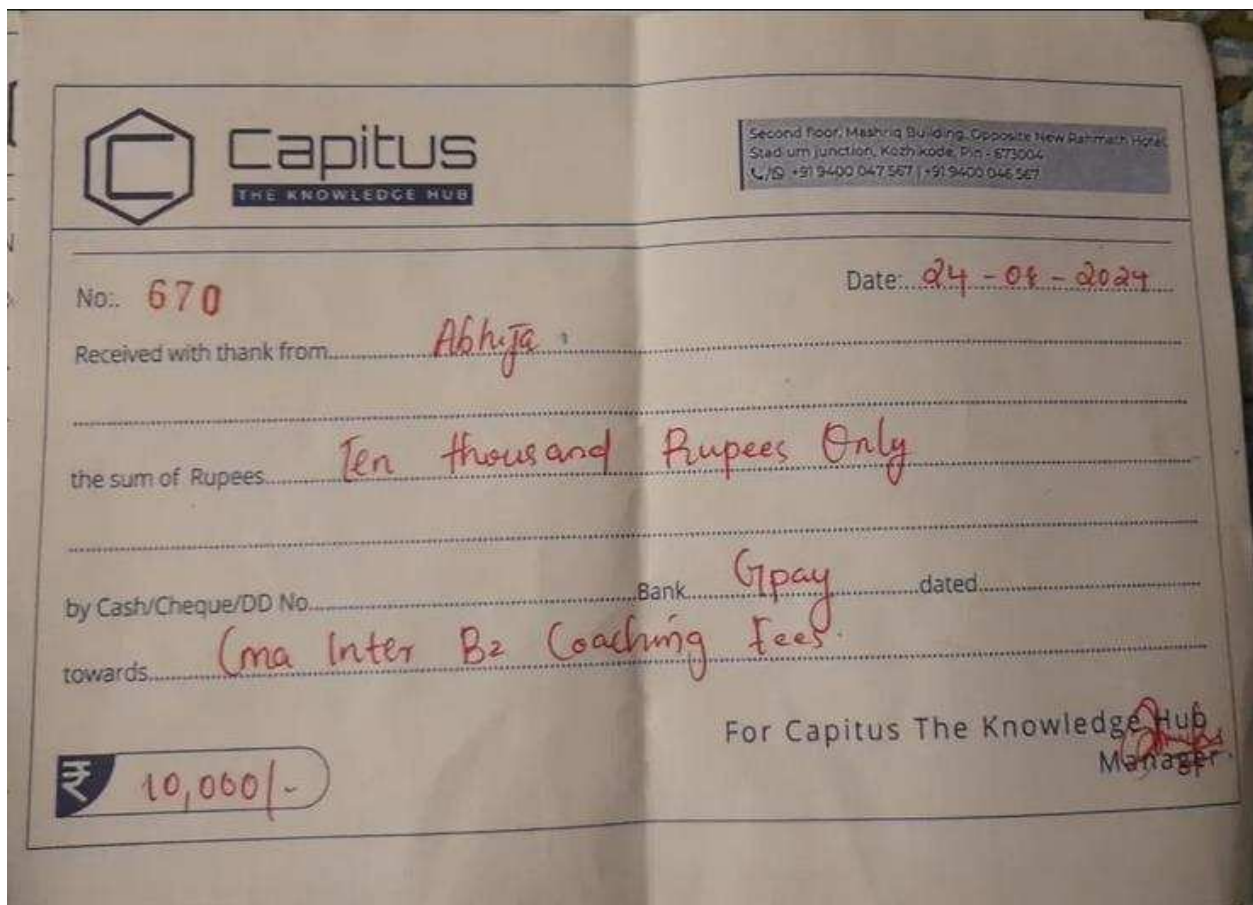 Capitus
THE KNOWLEDGE HUB
Second floor, Mashriq Building, Opposite New Rahmath Hotel
Stadium junction, Kozhikode, Pin - 673004
+91 9400 047 567 | +91 9400 046 567
No:. 670
Date: 24 - 08 - 2024
Received with thank from Abhija
the sum of Rupees Ten thousand Rupees Only
by Cash/Cheque/DD No Bank Gpay dated
towards Cma Inter B2 Coaching Fees.
For Capitus The Knowledge Hub
Manager
₹ 10,000/-